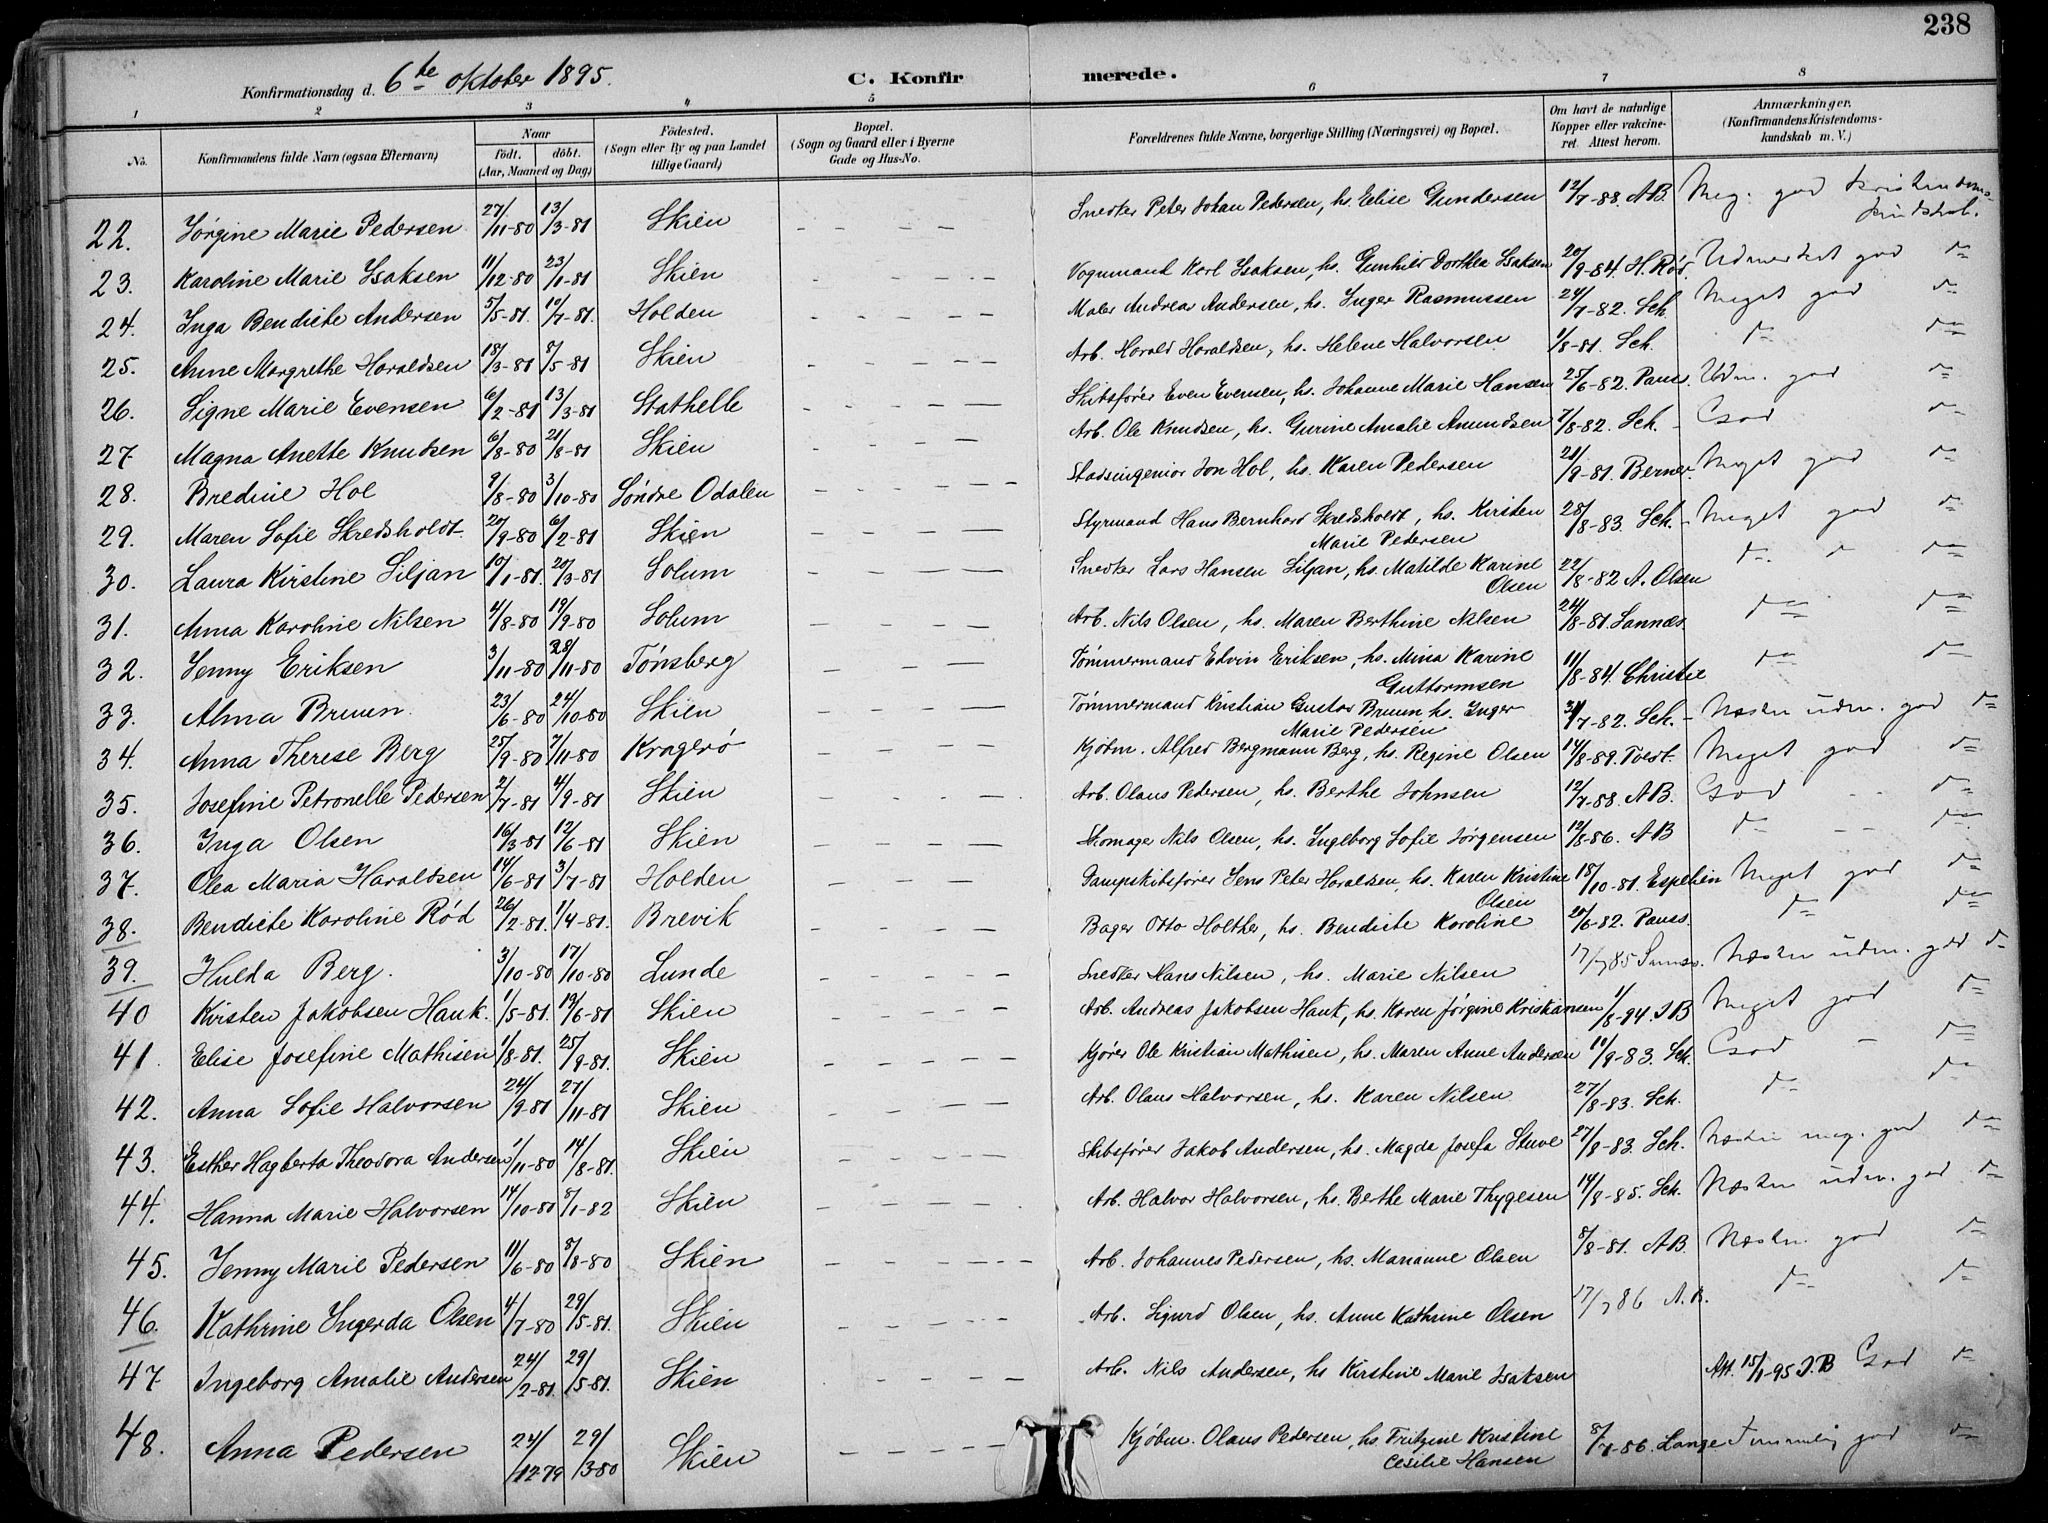 238
Konfirmationsdag d. 6te oktober 1895. C. Konfirmerede.
1 2 3 4 5 6 7 8
No. Konfirmandens fulde Navn (ogsaa Efternavn) Naar födt. döbt. (Aar, Maaned og Dag) Födested. (Sogn eller By og paa Landet tillige Gaard) Bopæl. (Sogn og Gaard eller i Byerne Gade og Hus-No. Forældrenes fulde Navne, borgerlige Stilling (Næringsvei) og Bopæl. Om havt de naturlige Kopper eller vakcineret. Attest herom. Anmærkninger. (Konfirmandens Kristendomskundskab m. V.)
22. Jørgine Marie Pedersen 27/11-80 13/3-81 Skien - - - - Snedker Peter Johan Pedersen, hs. Elise Gundersen 12/7-88. AB. Meg. god Kristendomskundskab.
23. Karoline Marie Isaksen 11/12-80 23/1-81 Skien - - - - Vognmand Karl Isaksen, hs. Gunhild Dorthea Isaksen 20/9-84. H. Rød. Udmerket god do
24. Inga Bendicte Andersen 5/5-81. 10/7-81. Holden - - - - Maler Andreas Andersen, hs. Inger Rasmussen 24/7-82. Sch. Meget god do
25. Anne Margrethe Haraldsen 18/3-81 8/5-81 Skien - - - - Arb. Harald Haraldsen, hs. Helene Halvorsen 1/8-81. Sch. do do
26. Signe Marie Evensen 6/2-81 13/3-81 Stathelle - - - - Skibsfører Even Evensen, hs. Johanne Marie Hansen 25/6-82. Pauss. Udm. god do
27. Magna Anette Knudsen 6/8-80 21/8-81 Skien - - - - Arb. Ole Knudsen, hs. Gurine Amalie Amundsen 7/8-82. Sch. - God do
28. Bredine Hol 9/8-80 3/10-80 Søndre Odalen - - - - Stadsingeniør Jon Hol, hs. Karen Pedersen 21/9-81. Berner. Meget god do
29. Maren Sofie Skredsholdt 20/9-80 6/2-81 Skien - - - - Styrmand Hans Bernhard Skredsholdt, hs. Kirsten Marie Pedersen 28/8-83. Sch. - Meget god do
30. Laura Kirstine Siljan 10/1-81. 20/3-81 Solum - - - - Snedker Lars Hansen Siljan, hs. Matilde Karine Olsen 22/8-82 A. Olsen do do do
31. Anna Karoline Nilsen 4/8-80 19/9-80 Solum - - - - Arb. Nils Olsen, hs. Maren Berthine Nilsen 24/8-81. Sannæs. do do
32. Jenny Eriksen 3/11-80 28/11-80 Tønsberg - - - - Tømmermand Edvin Eriksen, hs. Mina Karine Guttormsen 11/8-84. Christie do do
33. Alma Bruun. 23/6-80 24/10-80 Skien - - - - Tømmermand Kristian Gustav Bruun hs. Inger Marie Pedersen 31/7-82. Sch. - Næsten udm. god do
34. Anna Therese Berg 25/9-80 7/11-80 Kragerø - - - - Kjøbm. Alfred Bergmann Berg, hs. Regine Olsen 14/8-89. Tvedt. Meget god do
35. Josefine Petronelle Pedersen 2/7-81 4/9-81 Skien - - - - Arb. Olaus Pedersen, hs. Berthe Johnsen 12/7-88. AB. God - - do
36. Inga Olsen 16/3-81 12/6-81 Skien - - - - Skomager Nils Olsen, hs. Ingeborg Sofie Jørgensen 12/8-86. AB do - - do
37. Olea Maria Haraldsen 14/6-81 3/7-81 Holden - - - - Dampskibsfører Jens Peter Haraldsen, hs. Karen Kristine Olsen 18/10-81. Espelien Meget god do
38. Bendicte Karoline Rød 26/2-81. 1/4-81. Brevik - - - - Bager Otto Holther, hs. Bendicte Karoline 20/6-82. Pauss. do do
39. Hulda Berg. 3/10-80 17/10-80 Lunde - - - - Snedker Hans Nilsen, hs. Marie Nilsen 17/7 85 Næsten udm. god do
40 Kirsten Jakobsen Hauk. 1/5-81. 19/6-81 Skien - - - - Arb. Andreas Jakobsen Hauk, hs. Karen Jørgine Kristiansen 1/8-94. JB Meget god do
41. Elise Josefine Mathisen 1/8-81. 25/9-81. Skien - - - - Kjører Ole Kristian Mathisen, hs. Maren Anne Andersen 10/9-83. Sch. God - do
42. Anna Sofie Halvorsen 24/9-81 27/11-81 Skien - - - - Arb. Olaus Halvorsen, hs. Karen Nilsen 27/8-83. Sch. do do
43. Esther Hagberta Theodora Andersen 1/11-80 14/8-81. Skien - - - - Skibsfører Jakob Andersen, hs. Magda Josefa Stuve 27/8-83. Sch. Næsten meg. god do
44. Hanna Marie Halvorsen 14/10-80 8/1-82 Skien - - - - Arb. Halvor Halvorsen, hs. Berthe Marie Thygesen 14/8-85. Sch. Næsten udm. god do
45. Jenny Marie Pedersen 11/6-80 8/8-80 Skien - - - - Arb. Johannes Pedersen, hs. Marianne Olsen 8/8-81. AB. Næsten god do
46. Kathrine Ingerda Olsen 4/7-80 29/5-81. Skien - - - - Arb. Sigurd Olsen, hs. Anne Kathrine Olsen 17/7 86 A.B. do do
47. Ingeborg Amalie Andersen 24/2-81. 29/5-81. Skien - - - - Arb. Nils Andersen, hs Kirstine Marie Isaksen Att. 15/1-95 J.B God do
48. Anna Pedersen 24/12-79 29/3-80 Skien - - - - Kjøbm. Olaus Pedersen, hs. Fritzine Kristine Cecilie Hansen 8/7-86. Lange Temmelig god do